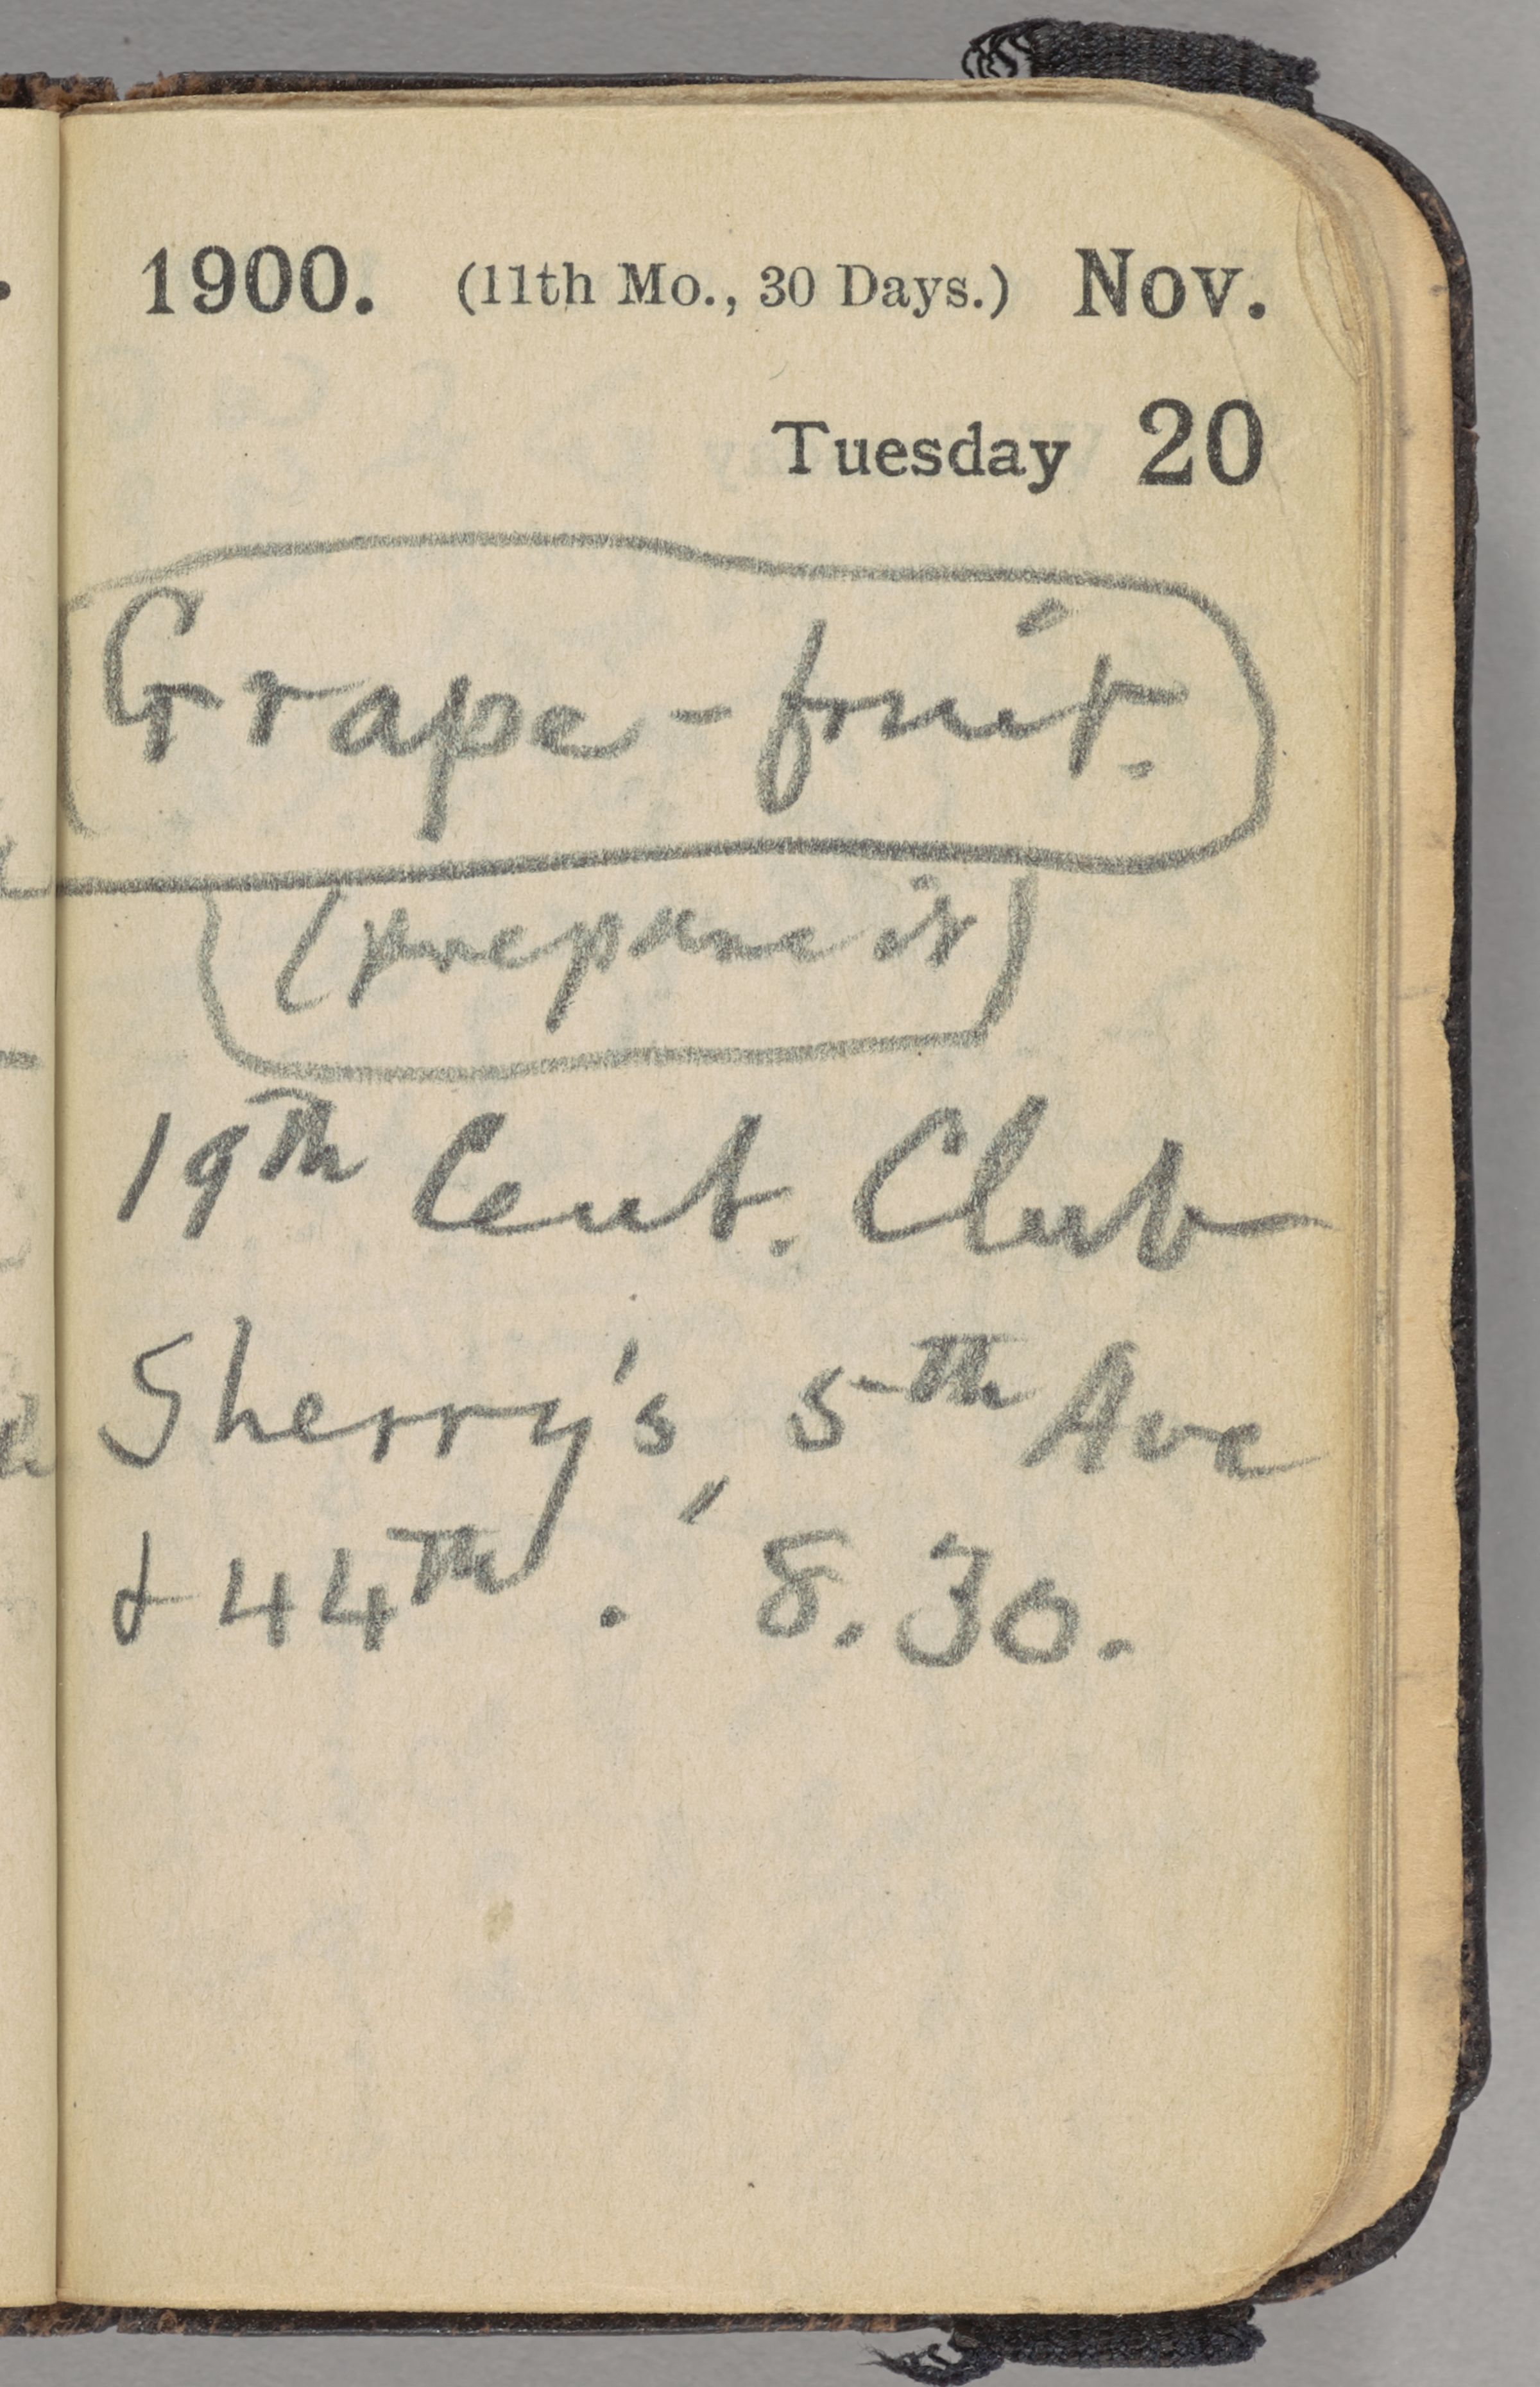 1900. (11th Mo., 30 Days.) Nov.
Tuesday 20
Grape-fruit.
(prepare it)
19th Cent. Club
Sherry's, 5th Ave
& 44th. 8.30.